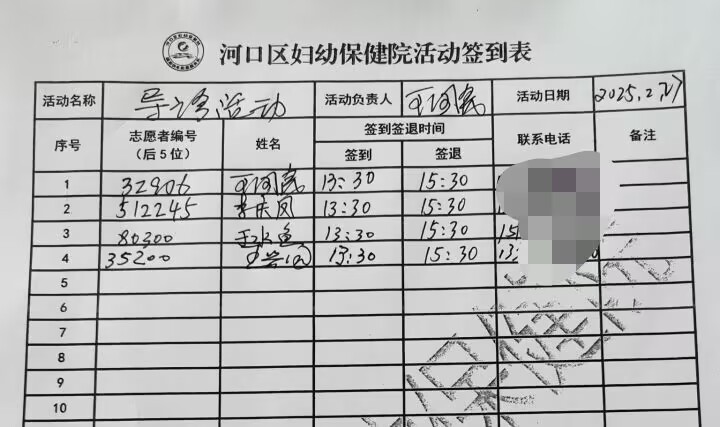 河口区妇幼保健院活动签到表
活动名称 导诊活动 活动负责人 活动日期 2025.2.27
序号 志愿者编号 姓名 签到签退时间 联系电话 备注
(后5位) 签到 签退
1 32906 13:30 15:30
2 512245 李庆凤 13:30 15:30
3 80300 13:30 15:30 15
4 35200 13:30 15:30 13
5
6
7
8
9
10